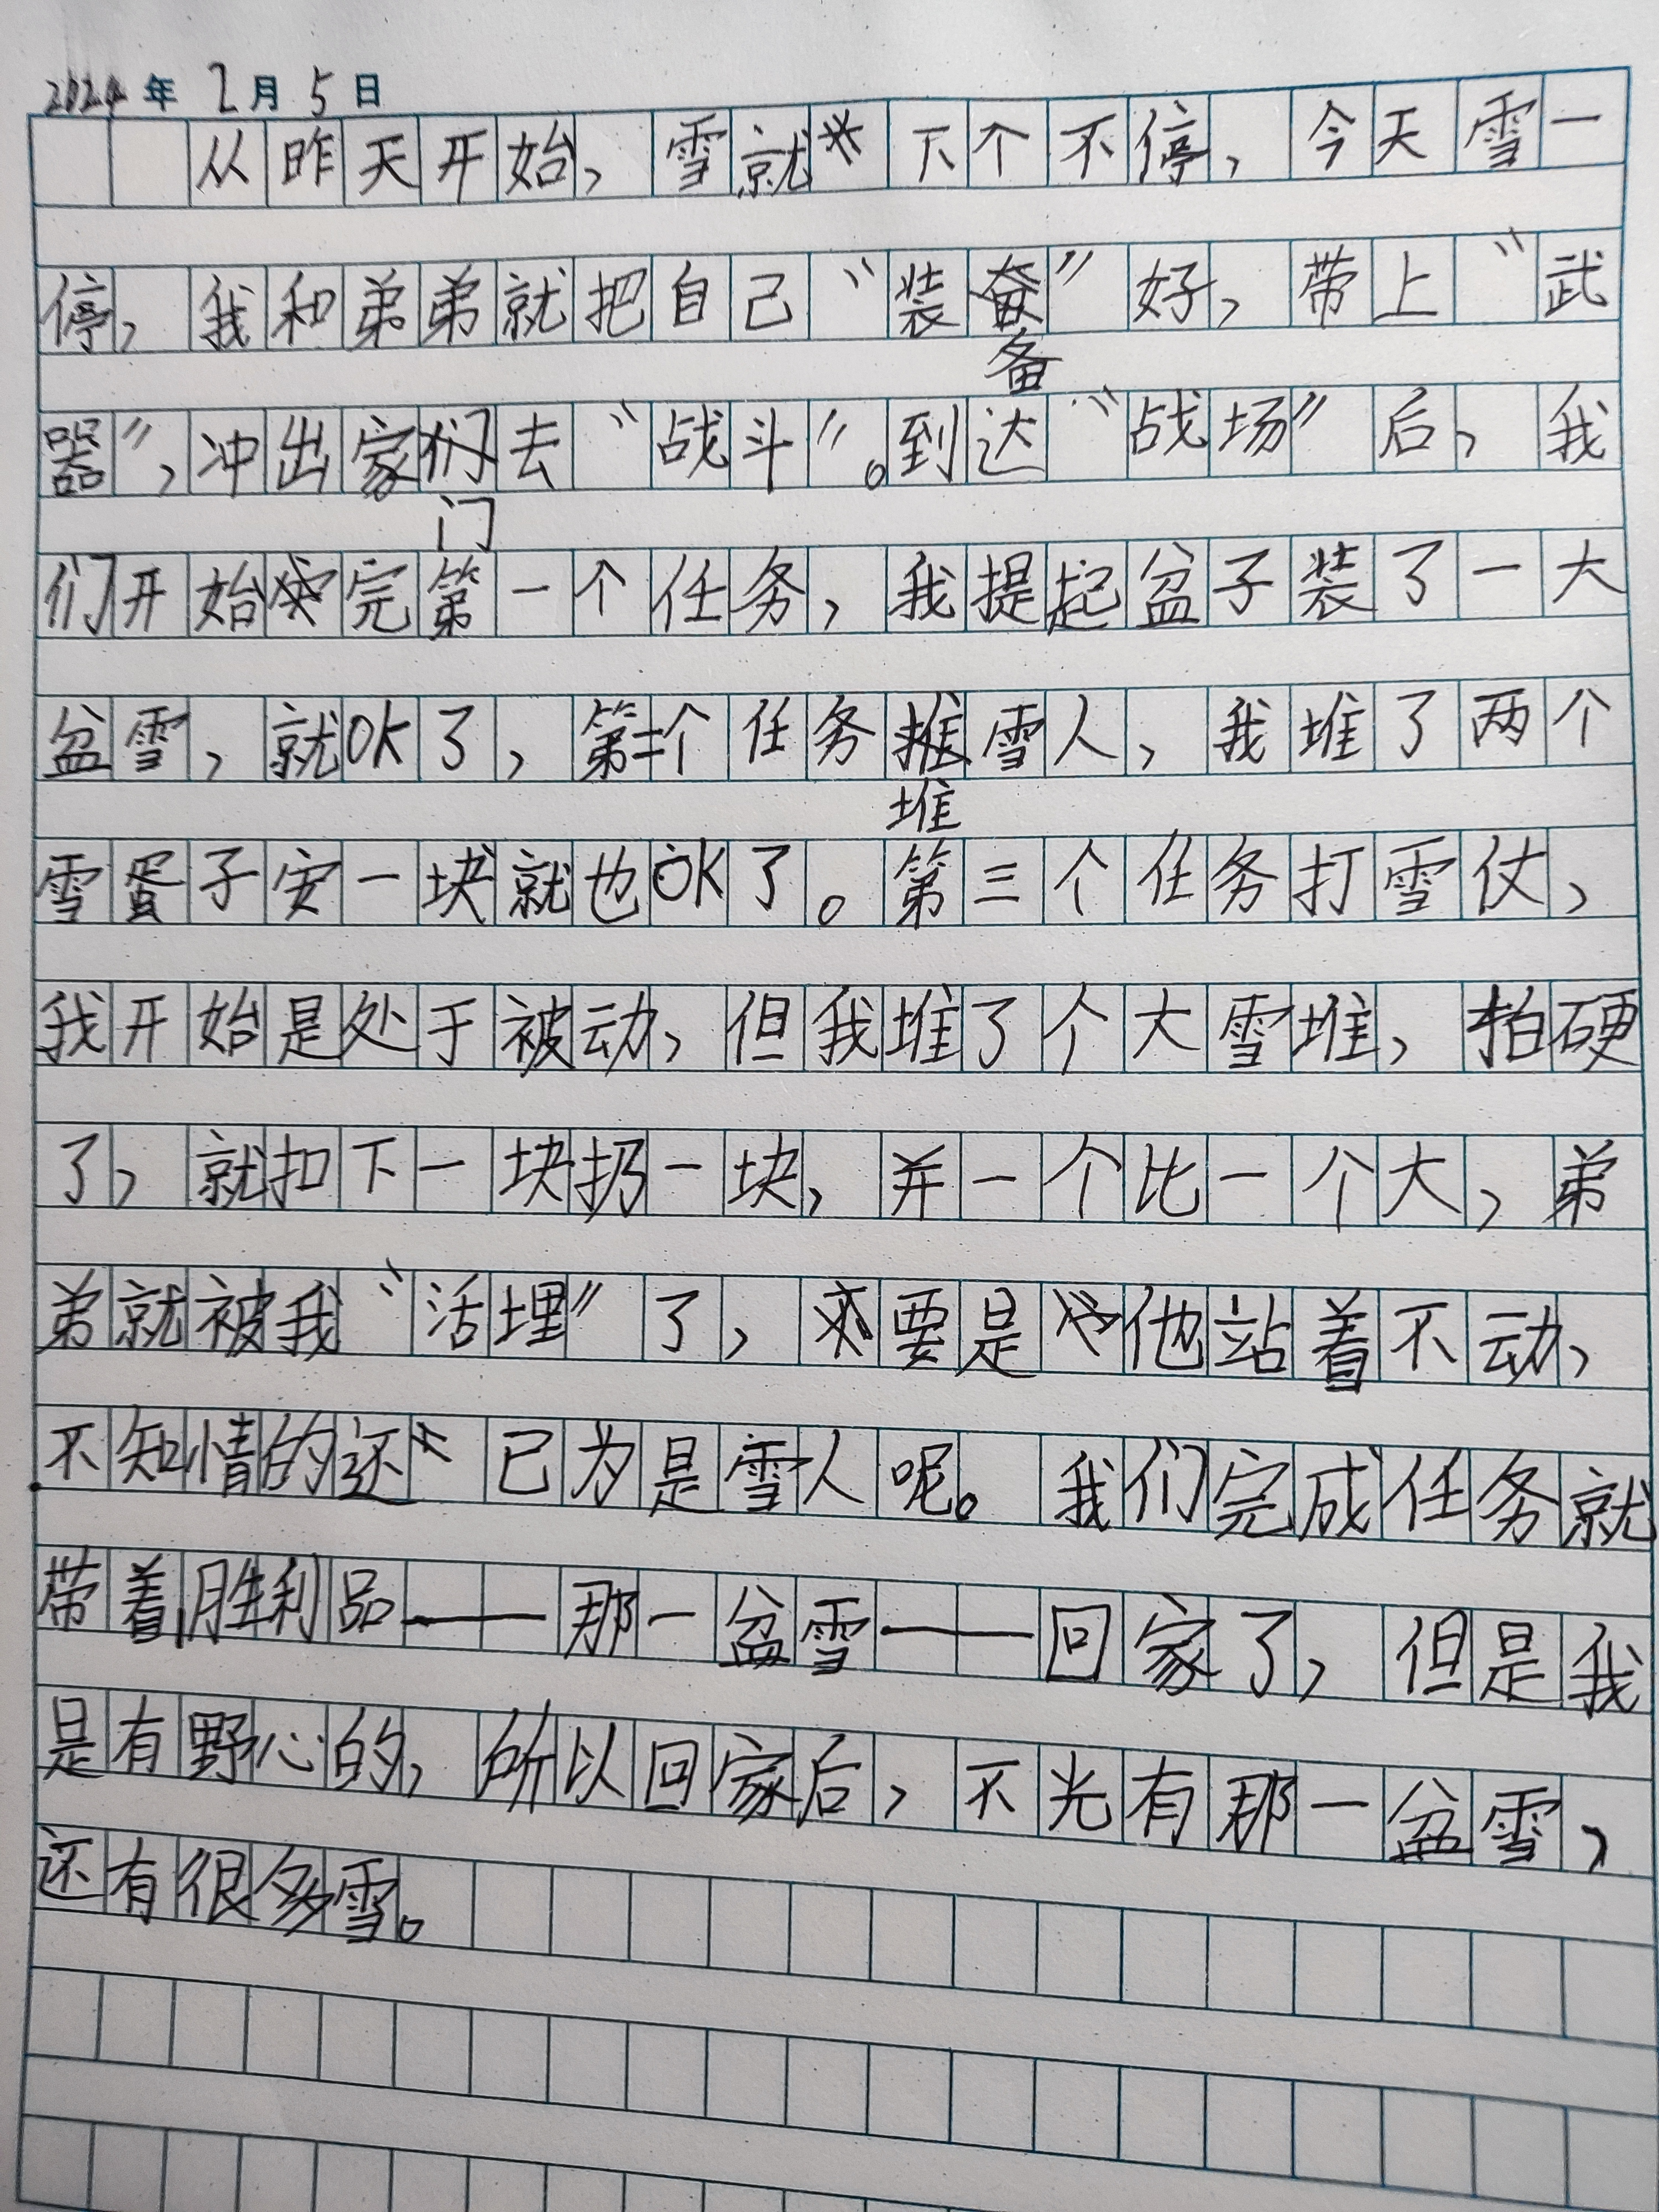 2024年2月5日
从昨天开始，雪就下个不停，今天雪一
停，我和弟弟就把自己“装备”好，带上“武
器”，冲出家门去“战斗”。到达“战场”后，我
们开始完第一个任务，我提起盆子装了一大
盆雪，就OK了，第二个任务堆雪人，我堆了两个
雪蛋子安一块就也OK了。第三个任务打雪仗，
我开始是处于被动，但我堆了个大雪堆，拍硬
了，就扣下一块扔一块，并一个比一个大，弟
弟就被我“活埋”了，要是他站着不动，
不知情的还已为是雪人呢。我们完成任务就
带着胜利品——那一盆雪——回家了，但是我
是有野心的，所以回家后，不光有那一盆雪，
还有很多雪。